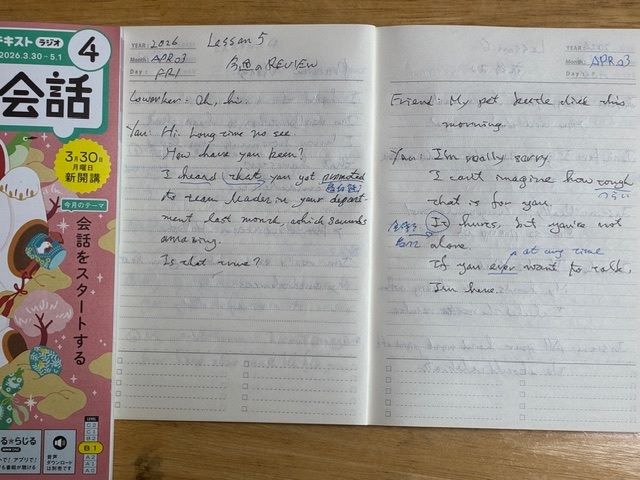 テキスト ラジオ 4
2026.3.30-5.1
会話
3月30日
月曜日
新開講
今月のテーマ
会話をスタートする
LEVEL
C2
C1
B2
B1
A2
A1
A0
音声
ダウンロード
は別売です
YEAR: 2026 Lesson 5
Month: APR 03 今週のREVIEW
Day: FRI
Coworker: Oh, hi.
You: Hi. Long time no see.
How have you been?
I heard that you got promoted
to team leader in your depart-
ment last month, which sounds
amazing.
Is that true?
Month: APR 03
Day:
Friend: My pet beetle died this
morning.
You: I'm really sorry.
I can't imagine how rough
つらい
that is for you.
It hurts, but you're not
alone.
at any time
If you ever want to talk,
I'm here.